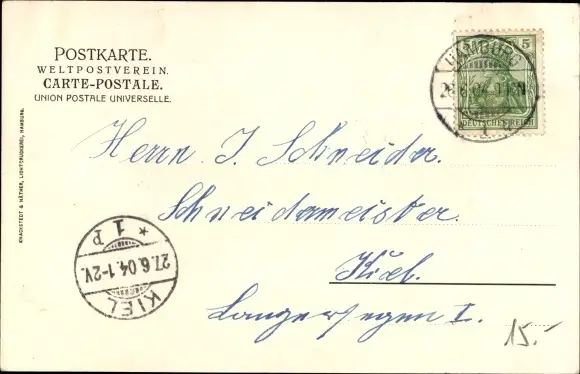 POSTKARTE.
WELTPOSTVEREIN.
CARTE-POSTALE.
UNION POSTALE UNIVERSELLE.
KNACKSTEDT & NÄTHER, LICHTDRUCKEREI, HAMBURG.
5
DEUTSCHES REICH
HAMBURG
6.04
1
Herrn J. Schneider.
Schneidermeister.
Kiel.
I.
KIEL
27.6.04.1-2V.
* 1 P
15.-